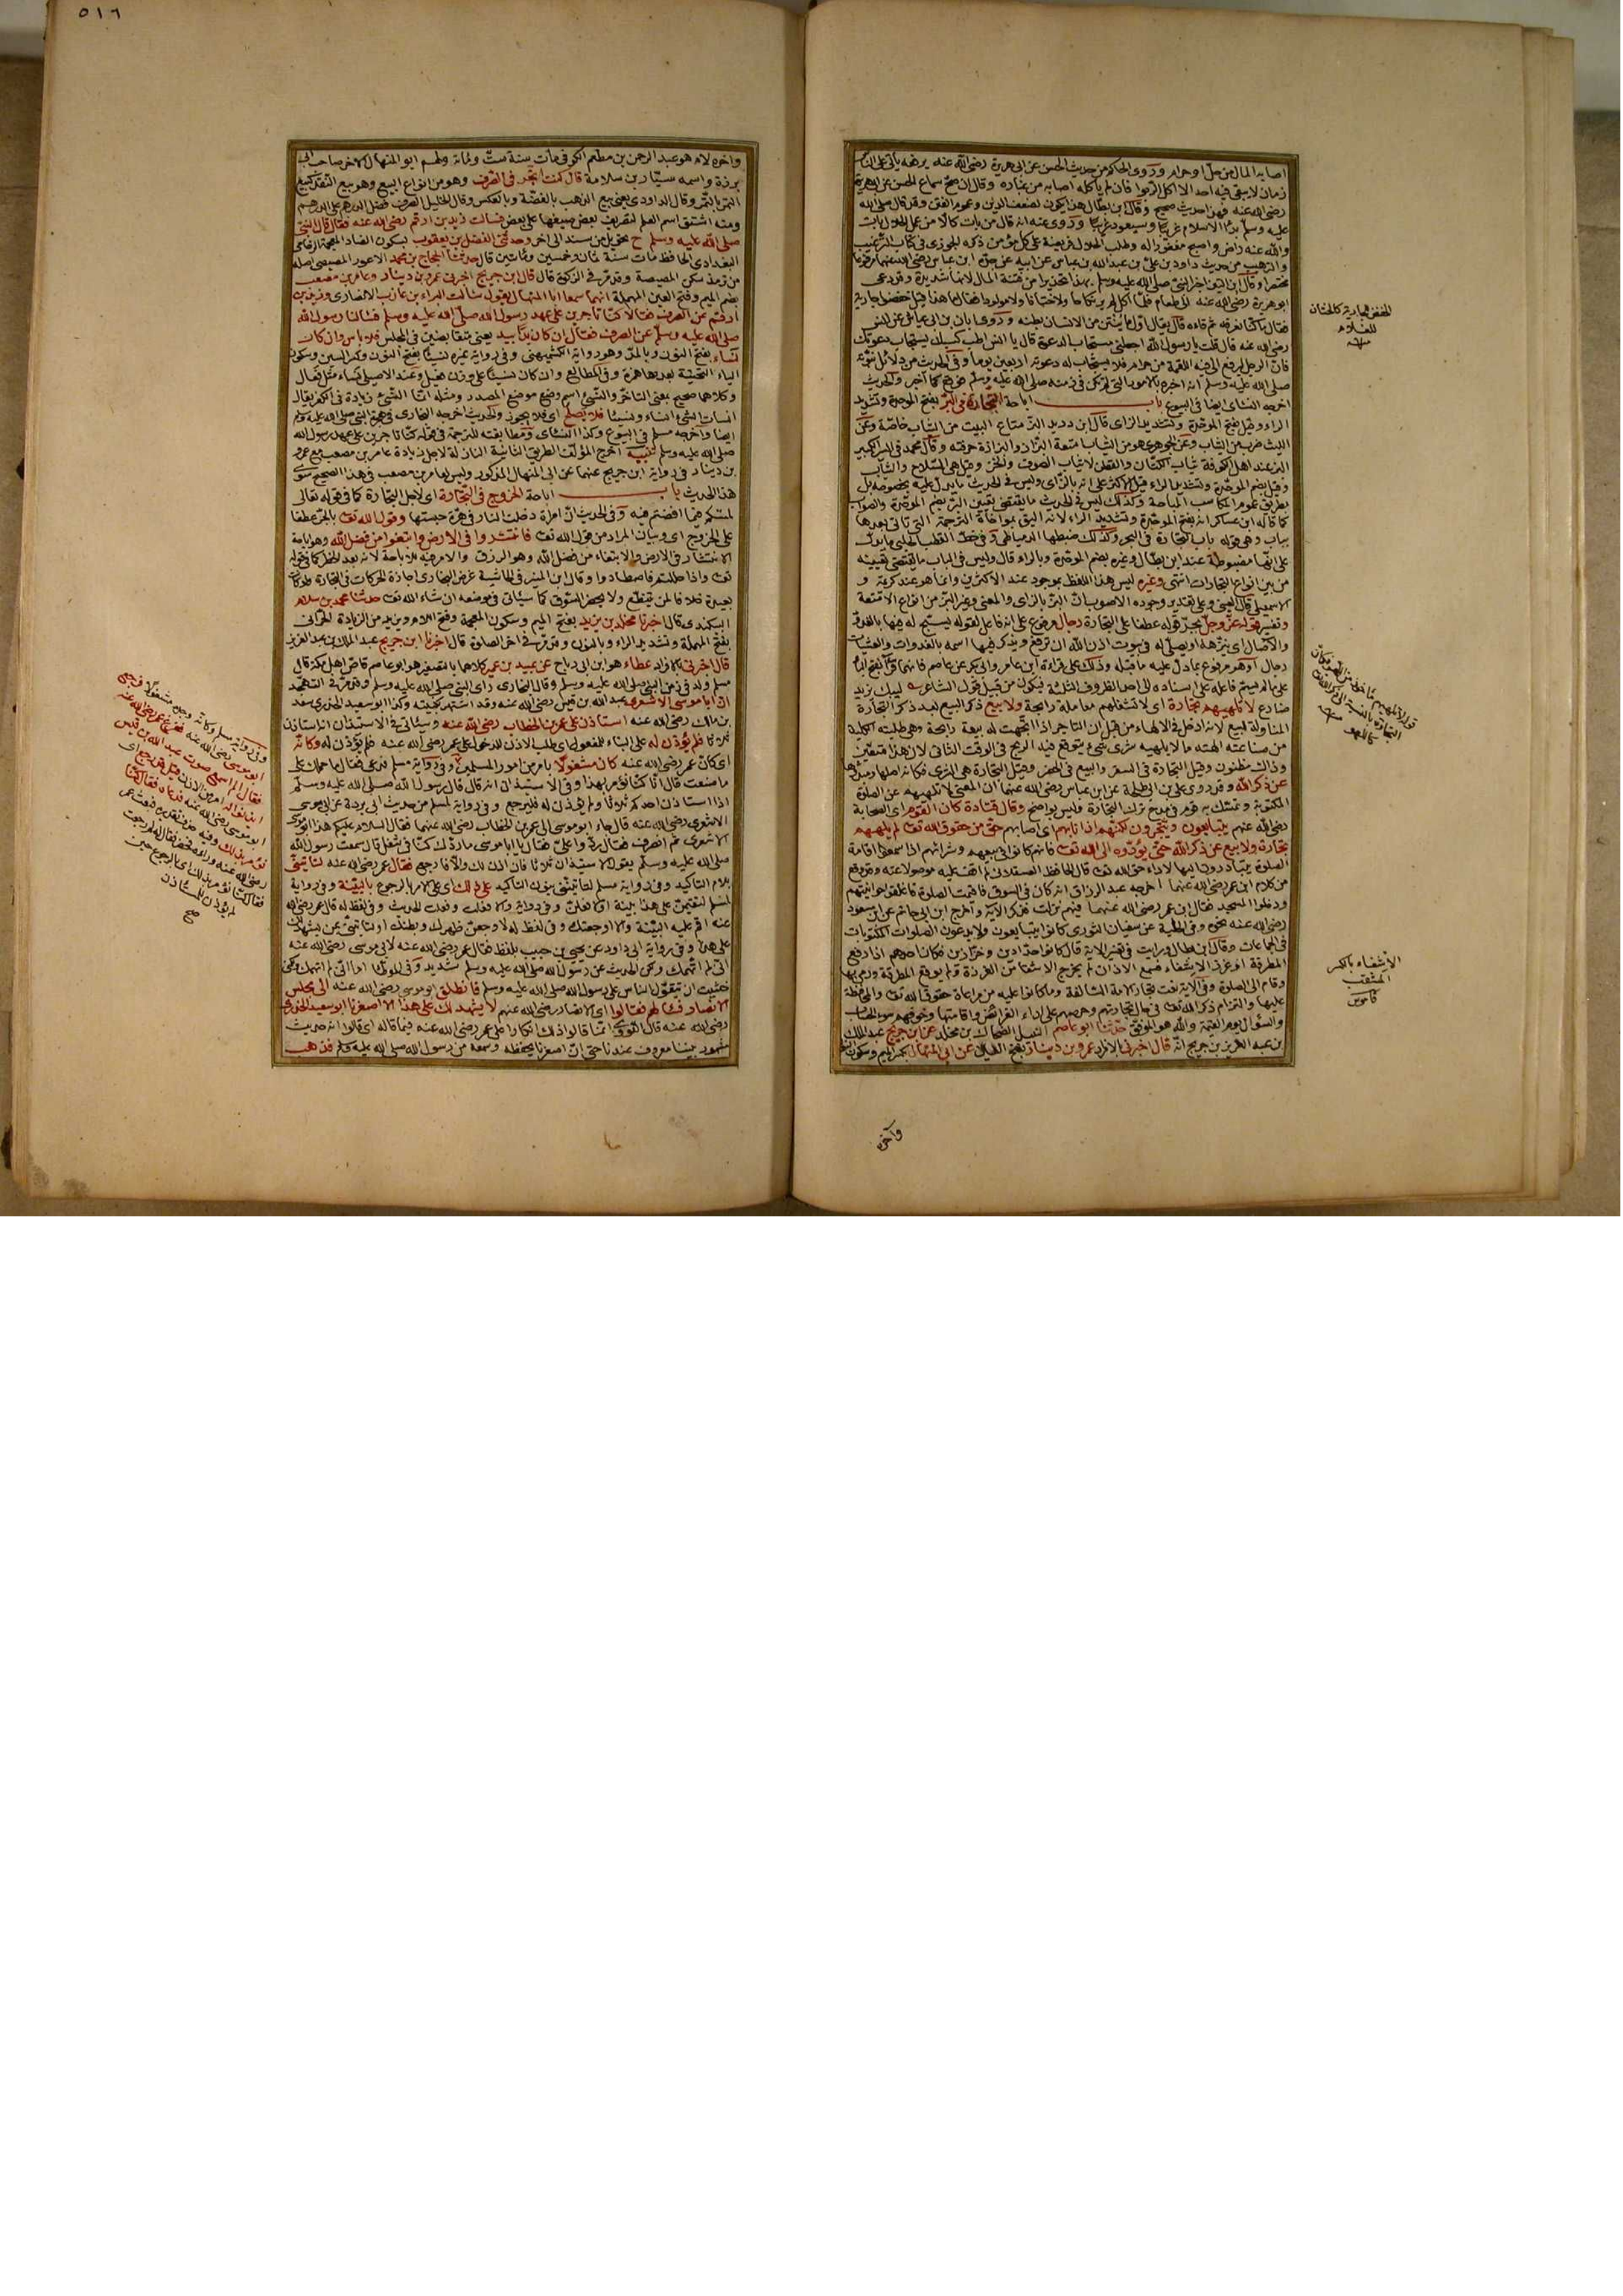 اصابه المال من حل او حرام وروى الحاكم من حديث الحسن عن ابى هريرة رضى الله عنه يرفعه يأتى على الناس
زمان لا يبقى فيه احد الا اكل الربوا فان لم يأكله اصابه من غباره وقال ان صح سماع الحسن عن ابى هريرة
رضى الله عنه فهذا حديث صحيح وقال ابن بطال هذا يكون لضعف الدين وعموم الفتن وقد قال صلى الله
عليه وسلم بدأ الاسلام غريبا وسيعود غريبا وروى عنه انه قال من بات كالا من عمل الحلال بات
والله عنه راض واصبح مغفورا له وطلب الحلال فريضة على كل مؤمن ذكره الجوزى فى كتاب الترغيب
والترهيب من حديث داود بن على بن عبد الله بن عباس عن ابيه عن جده ابن عباس رضى الله عنهما مرفوعا
مختصرا وقال ابن التين اخبر النبى صلى الله عليه وسلم بهذا تحذيرا من فتنة المال لانها شديدة وقد دعى
ابو هريرة رضى الله عنه الى طعام فلما اكل لم ير نكاحا ولا ختانا ولا مولودا فقال ما هذا قيل خفضوا جارية
فقال ما كنا نعرفه ثم قاءه قال يقال اول ما ينتن من الانسان بطنه وروى ابان بن ابى عياش عن انس
رضى الله عنه قال قلت يا رسول الله اجعلنى مستجاب الدعوة قال يا انس اطب كسبك يستجاب دعوتك
فان الرجل ليرفع الى فيه اللقمة من حرام فلا يستجاب له دعوته اربعين يوما وفى الحديث من دلائل نبوته
صلى الله عليه وسلم انه اخبر بالامور التى لم تكن فى زمنه صلى الله عليه وسلم فوقع كما اخبر والحديث
اخرجه النسائى ايضا فى البيوع باب اباحة التجارة فى البر بفتح الموحدة وتشديد
الراء وقيل بفتح الموحدة وتشديد الزاى قال ابن دريد البز متاع البيت من الثياب خاصة وعن
الليث ضرب من الثياب وعن الجوهرى هو من الثياب امتعة البزاز والبزازة حرفته وقال محمد فى السير الكبير
البز عند اهل الكوفة ثياب الكتان والقطن لا ثياب الصوف والخز وقيل هى السلاح والثياب
وقيل بضم الموحدة وتشديد الراء قيل الاكثر على انه بالزاى وليس فى الحديث ما يدل عليه بخصوصه بل
بطريق عموم المكاسب المباحة وكذلك ليس فى الحديث ما يقتضى تعيين البر بضم الموحدة والصواب
كما قاله ابن عساكر انه بفتح الموحدة وتشديد الراء لانه اليق بمواخاة الترجمة التى تاتى بعدها
بباب وهى قوله باب التجارة فى البحر وكذلك ضبطها الدمياطى وفى خط القطب الحلبى ما يدل
على انها مضبوطة عند ابن بطال وغيره بضم الموحدة وبالراء وقال وليس فى الباب ما يقتضى تعيينه
من بين انواع التجارات انتهى وغيره ليس هذا اللفظ بموجود عند الاكثرين وانما هو عند كريمة و
الاسمعيلى قال العينى وعلى تقدير وجوده الاصوب ان البز بالزاى والمعنى وغير البز من انواع الامتعة
وتفسير قوله عز وجل بجر قوله عطفا على التجارة رجال مرفوع على انه فاعل لقوله يسبح له فيها بالغدو
والآصال اى ينزهه او يصلى له فى بيوت اذن الله ان ترفع ويذكر فيها اسمه بالغدوات والعشيات
رجال او هو مرفوع بما دل عليه ما قبله وذلك على قراءة ابن عامر وابى بكر عن عاصم فانهما قرآ بفتح الباء
على ما لم يسم فاعله على اسناده الى احد الظروف الثلاثة فيكون من قبيل قول الشاعر ليبك يزيد
ضارع لا تلهيهم تجارة اى لا تشغلهم معاملة رابحة ولا بيع ذكر البيع بعد ذكر التجارة
المتناولة للبيع لانه ادخل فى الالهاء من قبل ان التاجر اذا اتجهت له بيعة رابحة وهى طلبته الكلية
من صناعته الهته ما لا يلهيه شرى شىء يتوقع فيه الربح فى الوقت الثانى لان هذا متيقن
وذاك مظنون وقيل التجارة فى السفر والبيع فى الحضر وقيل التجارة هى الشرى فكانه اصلها ومبدؤها
عن ذكر الله وقد روى على بن ابى طلحة عن ابن عباس رضى الله عنهما ان المعنى لا تلهيهم عن الصلوة
المكتوبة وتمسك به قوم فى مدح ترك التجارة وليس بواضح وقال قتادة كان القوم اى الصحابة
رضى الله عنهم يتبايعون ويتجرون لكنهم اذا نابهم اى اصابهم حق من حقوق الله تعالى لم يلههم
تجارة ولا بيع عن ذكر الله حتى يؤدوه الى الله تعالى فانهم كانوا فى بيعهم وشرائهم اذا سمعوا اقامة
الصلوة يتبادرون اليها لاداء حق الله تعالى قال الحافظ العسقلانى لم اقف عليه موصولا عنه وقد وقع
من كلام ابن عمر رضى الله عنهما اخرجه عبد الرزاق انه كان فى السوق فاقيمت الصلوة فاغلقوا حوانيتهم
ودخلوا المسجد فقال ابن عمر رضى الله عنهما فيهم نزلت فذكر الآية واخرج ابن ابى حاتم عن ابن مسعود
رضى الله عنه نحوه وفى الحلية عن سفيان الثورى كانوا يتبايعون ولا يدعون الصلوات المكتوبات
فى الجماعات وقال ابن بطال ورايت فى تفسير الاية قال كانوا حدادين وخرازين فكان احدهم اذا رفع
المطرقة او غرز الاشفاء فسمع الاذان لم يخرج الاشفاء من الغرزة ولم يوقع المطرقة ورمى بها
وقام الى الصلوة وفى الآية نعت تجار الامة السالفة وما كانوا عليه من مراعاة حقوق الله تعالى والمحافظة
عليها والتزام ذكر الله تعالى فى حال تجارتهم وحرصهم على اداء الفرائض واقامتها وخوفهم سوء الحساب
والسؤال يوم القيمة والله هو الموفق حدثنا ابو عاصم النبيل الضحاك بن مخلد عن ابن جريج عبد الملك
بن عبد العزيز بن جريج انه قال اخبرنى بالافراد عمرو بن دينار بفتح العين عن ابى المنهال بكسر الميم وسكون النون
وآخره
الخفض للجارية كالختان
للغلام
قوله لا تلهيهم مأخوذ من اللهو فكان
التجارة بالنسبة الى ذكر الله
كاللهو
الاشفاء بالكسر
المثقب
قاموس
٥١٦
وآخره لام هو عبد الرحمن بن مطعم الكوفى مات سنة ست ومائة ولهم ابو المنهال الاخر صاحب ابى
برزة واسمه سيار بن سلامة قال كنت اتجر فى الصرف وهو من انواع البيع وهو بيع النقد كبيع
التمر بالتمر وقال الداودى يعنى بيع الذهب بالفضة وبالعكس وقال الخليل الصرف فضل الدرهم على الدرهم
ومنه اشتق اسم العلم لتصريف بعض صيغها على بعض فسالت زيد بن ارقم رضى الله عنه فقال قال النبى
صلى الله عليه وسلم ح تحويل من سند الى اخر وحدثنى الفضل بن يعقوب بسكون الضاد المعجمة الرخامى
البغدادى الحافظ مات سنة ثمان وخمسين ومائتين قال حدثنا الحجاج بن محمد الاعور المصيصى اصله
من ترمذ سكن المصيصة وقد مر فى الزكوة قال قال ابن جريج اخبرنى عمرو بن دينار وعامر بن مصعب
بضم الميم وفتح العين المهملة انهما سمعا ابا المنهال يقول سألت البراء بن عازب الانصارى وزيد بن
ارقم عن الصرف فقالا كنا تاجرين على عهد رسول الله صلى الله عليه وسلم فسالنا رسول الله
صلى الله عليه وسلم عن الصرف فقال ان كان يدا بيد يعنى متقابضين فى المجلس فلا باس وان كان
نساء بفتح النون وبالمد وهو رواية الكشميهنى وفى رواية غيره نسيئا بفتح النون وكسر السين وسكون
الياء التحتية بعدها همزة وفى المطالع وان كان نسيئا على وزن فعيل وعند الاصيلى نساء مثل فعال
وكلاهما صحيح بمعنى التاخر والنسئ اسم وضع موضع المصدر ومثله انما النسئ زيادة فى الكفر يقال
انسأت الشىء انساء ونسيئا فلا يصلح اى فلا يجوز والحديث اخرجه البخارى فى هجرة النبى صلى الله عليه وسلم
ايضا واخرجه مسلم فى البيوع وكذا النسائى ومطابقته للترجمة فى قوله كنا تاجرين على عهد رسول الله
صلى الله عليه وسلم تنبيه اخرج المؤلف الطريق الثانية النازلة لاجل زيادة عامر بن مصعب مع عمرو
بن دينار فى رواية ابن جريج عنهما عن ابى المنهال المذكور وليس لعامر بن مصعب فى هذا الصحيح سوى
هذا الحديث باب اباحة الخروج فى التجارة اى لاجل التجارة كما فى قوله تعالى
لمسكم فيما افضتم فيه وفى الحديث ان امرأة دخلت النار فى هرة حبستها وقول الله تعالى بالجر عطفا
على الخروج اى وبيان المراد من قول الله تعالى فانتشروا فى الارض وابتغوا من فضل الله وهو اباحة
الانتشار فى الارض والابتغاء من فضل الله وهو الرزق والامر فيه للاباحة لانه بعد الحظر كما فى قوله
تعالى واذا حللتم فاصطادوا وقال ابن المنير فى الحاشية غرض البخارى اجازة الحركات فى التجارة ولو كانت
بعيدة خلافا لمن يتنطع ولا يحضر السوق كما سيأتى فى موضعه ان شاء الله تعالى حدثنا محمد بن سلام
البيكندى قال اخبرنا مخلد بن يزيد بفتح الميم وسكون المعجمة وفتح اللام ويزيد من الزيادة الحرانى
بفتح المهملة وتشديد الراء وبالنون وقد مر فى اخر الصلوة قال اخبرنا ابن جريج عبد الملك بن عبد العزيز
قال اخبرنى بالافراد عطاء هو ابن ابى رباح عن عبيد بن عمير كلاهما بالتصغير هو ابو عاصم قاص اهل مكة قال
مسلم ولد فى زمن النبى صلى الله عليه وسلم وقال البخارى راى النبى صلى الله عليه وسلم وقد مر فى التهجد
ان ابا موسى الاشعرى عبد الله بن قيس رضى الله عنه وقد اشتهر بكنيته وكذا ابو سعيد الخدرى سعد
بن مالك رضى الله عنه استأذن على عمر بن الخطاب رضى الله عنه وسيأتى فى الاستيذان انه استاذن
ثلاثا فلم يؤذن له على البناء للمفعول اى طلب الاذن للدخول على عمر رضى الله عنه فلم يؤذن له وكانه
اى كان عمر رضى الله عنه كان مشغولا بامر من امور المسلمين وفى رواية مسلم فدعى فقال ما حملك على
ما صنعت قال انا كنا نؤمر بهذا وفى الاستيذان انه قال قال رسول الله صلى الله عليه وسلم
اذا استاذن احدكم ثلاثا ولم يؤذن له فليرجع وفى رواية لمسلم من حديث ابى بردة عن ابى موسى
الاشعرى رضى الله عنه قال جاء ابو موسى الى عمر بن الخطاب رضى الله عنهما فقال السلام عليكم هذا ابو موسى
الاشعرى ثم انصرف فقال ردوا على فقال يا ابا موسى ما ردك كنا فى شغل قال سمعت رسول الله
صلى الله عليه وسلم يقول الاستيذان ثلاثا فان اذن لك والا فارجع فقال عمر رضى الله عنه لتأتينى
بلام التاكيد وفى رواية مسلم لتأتينى بنون التاكيد على ذلك اى على الامر بالرجوع بالبينة وفى رواية
لمسلم لتقيمن على هذا بينة او لافعلن وفى رواية والا فعلت وفعلت الحديث وفى لفظ له قال عمر رضى الله
عنه اقم عليه البينة والا اوجعتك وفى لفظ له لاوجعن ظهرك وبطنك او لتأتينى بمن يشهد لك
على هذا وفى رواية ابى داود عن يحيى بن حبيب بلفظ فقال عمر رضى الله عنه لابى موسى رضى الله عنه
انى لم اتهمك ولكن الحديث عن رسول الله صلى الله عليه وسلم شديد وفى الموطأ اما انى لم اتهمك ولكنى
خشيت ان يتقول الناس على رسول الله صلى الله عليه وسلم فانطلق ابو موسى رضى الله عنه الى مجلس
الانصار فسألهم فقالوا اى الانصار رضى الله عنهم لا يشهد لك على هذا الا اصغرنا ابو سعيد الخدرى
رضى الله عنه قال النووى انما قالوا ذلك انكارا على عمر رضى الله عنه فيما قاله اى قالوا انه حديث
مشهور بيننا معروف عندنا حتى ان اصغرنا يحفظه وسمعه من رسول الله صلى الله عليه وسلم فذهب
وفى رواية مسلم وكانه وجده مشغولا فرجع
ابو موسى رضى الله عنه ففرغ عمر رضى الله عنه
فقال الم اسمع صوت عبد الله بن قيس
ايذنوا له امر من الاذن قيل قد رجع اى
ابو موسى رضى الله عنه فدعاه فقال كنا
نؤمر بذلك وفيه حذف تقديره فبعث عمر
رضى الله عنه وراءه فحضر فقال له لم رجعت
فقال كنا نؤمر بذلك اى بالرجوع حين
لم يؤذن للمستأذن
صح